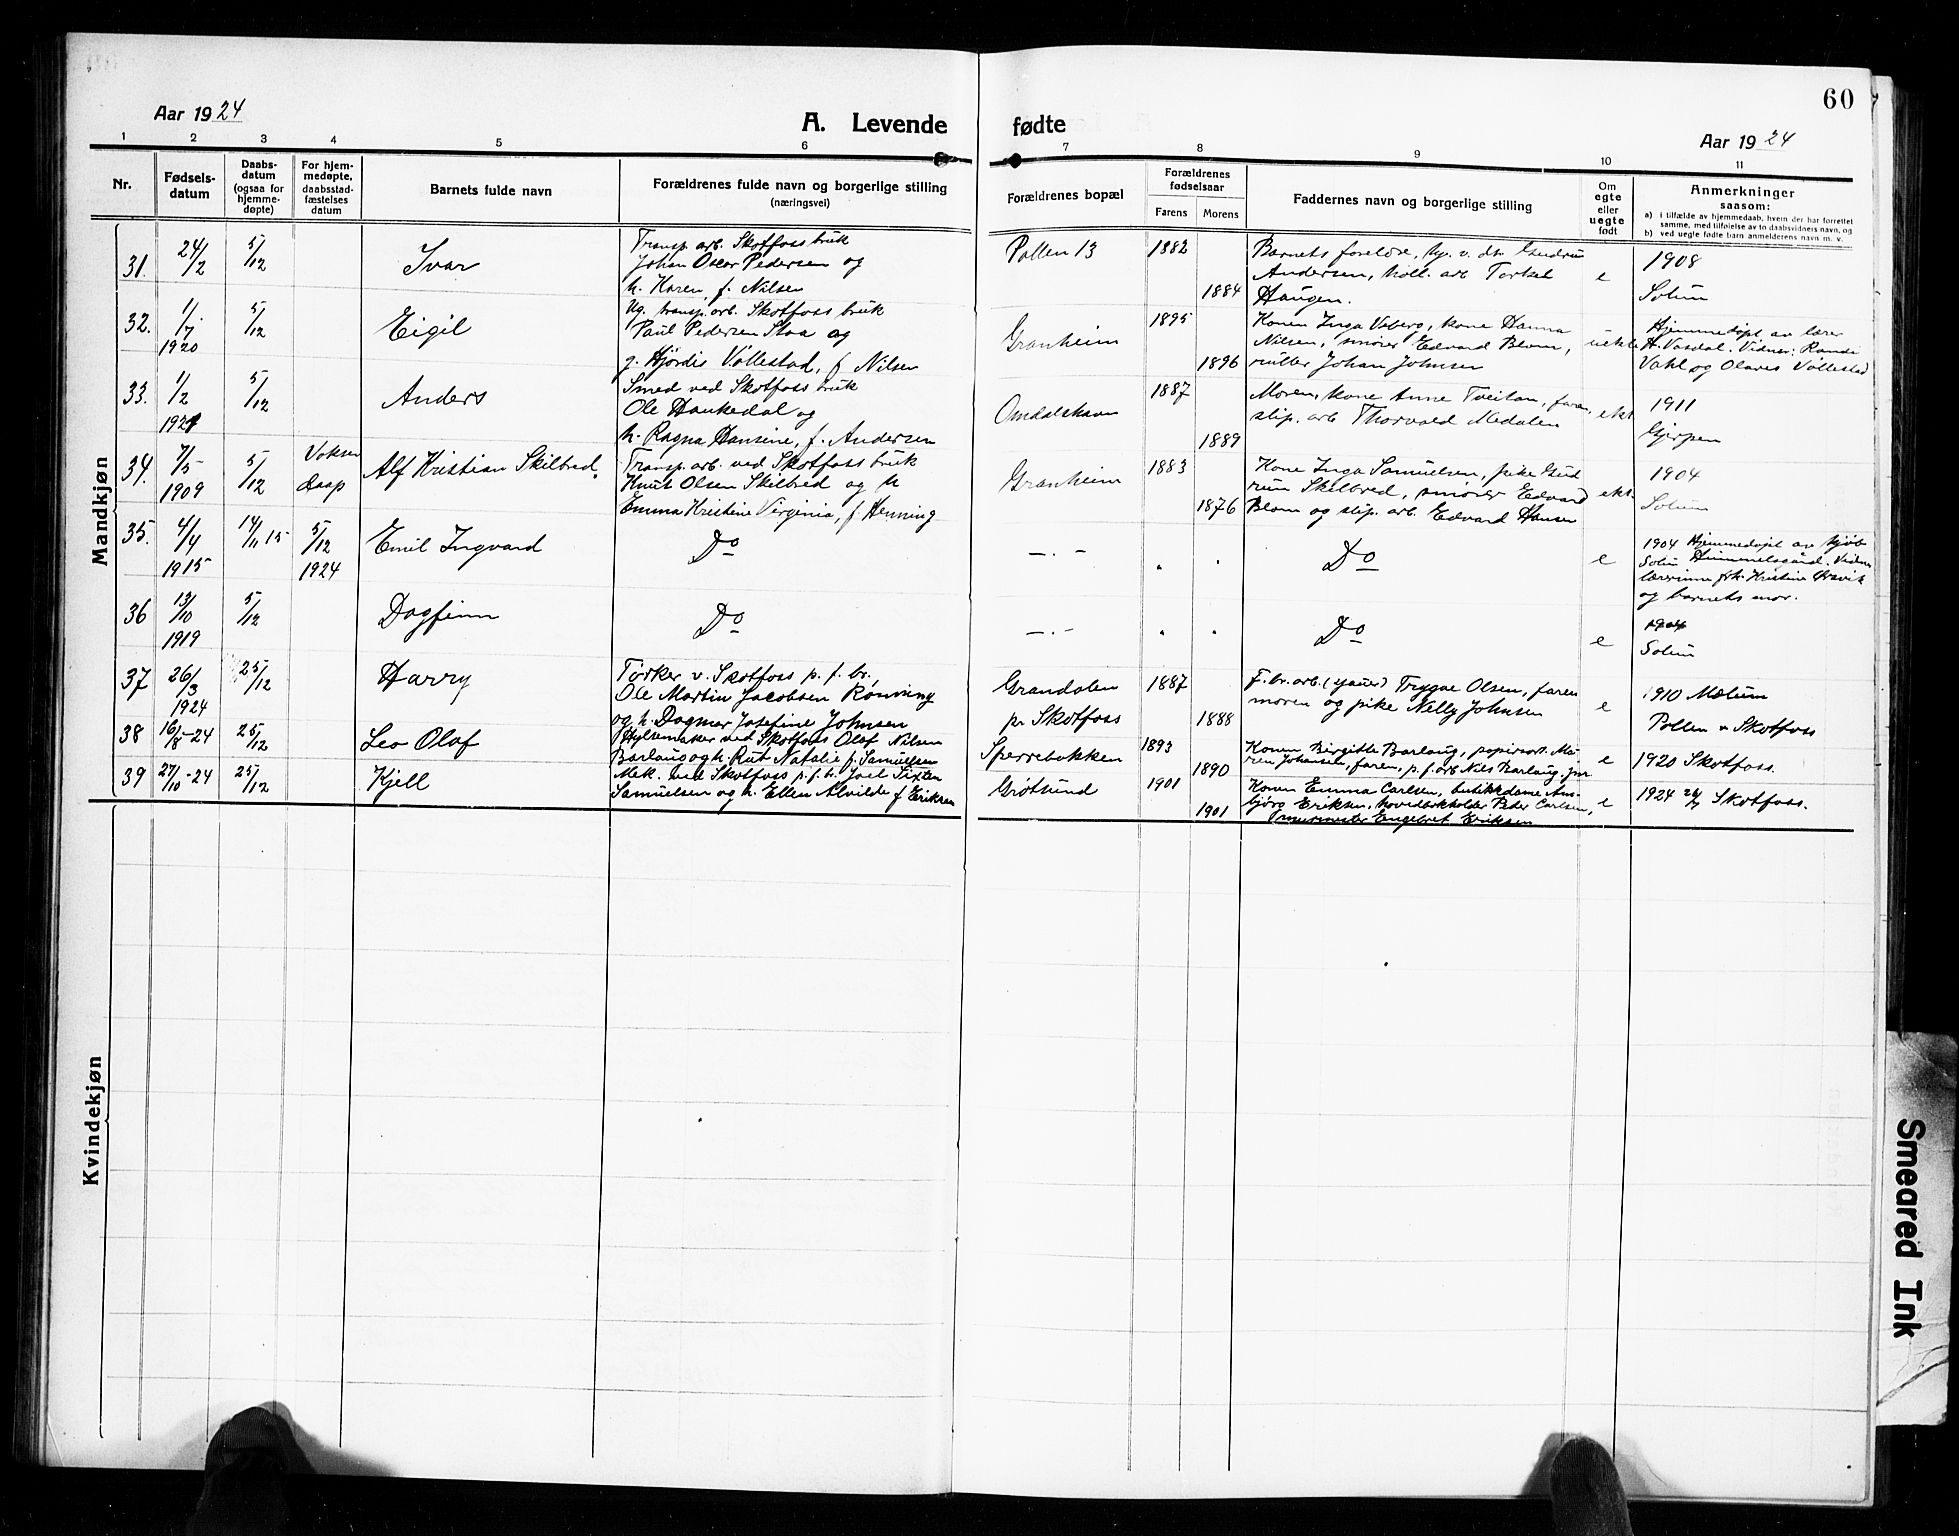 60
Aar 1924
A. Levende
fødte
Aar 1924
1 2 3 4 5 6
7 8 9 10 11
Nr.
Fødsels-
datum
Daabs-
datum
(ogsaa for
hjemme-
døpte)
For hjem-
medøpte,
daabsstad-
fæstelses
datum
Barnets fulde navn
Forældrenes fulde navn og borgerlige stilling
(næringsvei)
Forældrenes bopæl
Forældrenes
fødselsaar
Farens Morens
Faddernes navn og borgerlige stilling
Om
egte
eller
uegte
født
Anmerkninger
saasom:
a) i tilfælde av hjemmedaab, hvem der har forrettet
samme, med tilføielse av to daabsvidners navn, og
b) ved uegte fødte barn anmelderens navn m. v.
Mandkjøn
31. 24/2 5/12 Ivar
Transp. arb. Skotfoss bruk
Johan Oscar Pedersen og
h. Karen, f. Nilsen
Pollen 13 1882 1884
Barnets forældre, hp. v. dt. Gudrun
Andersen, holl. arb. Torkel
Haugen.
e
1908
Solum
32. 1/7 1920 5/12 Eigil
Ug. transp. arb. Skotfoss bruk
Paul Pedersen Staa og
g. Hjørdis Vollestad, f Nilsen
Granheim 1895 1896
Konen Inga Vaberg, kone Hanna
Nilsen, smører Edvard Blom,
Johan Johnsen
uekte
Hjemmedøpt av lærer
H. Vasdal. Vidner: Randi
Vahl og Olaves Vollestad
33. 1/2 1921 5/12 Anders
Smed ved Skotfoss bruk
Ole Haukedal og
h. Ragna Hansine, f. Andersen
Omdalshavn 1887 1889
Moren, kone Anne Tveitan, faren,
slip. arb Thorvald Medalen
ekt
1911
Gjerpen
34. 7/5 1909 5/12 Voksen Daap Alf Kristian Skilbred
Transp. arb. ved Skotfoss bruk
Knut Olsen Skilbred og h
Emma Kristine Virginia, f. Henning
Granheim 1883 1876
Kone Inga Samuelsen, pike Gud
run Skilbred, smører Edvard
Blom og slip. arb. Edvard Hansen
ekt.
1904
Solum
35. 4/4 1915 14/11 15 5/12 1924 Emil Ingvard
Do
—.— " "
Do
e
1904 Hjemmedøpt av kjøb
Solum Himmelsgård. Vidner
lærerinne frk. Kristine
og barnets mor.
36 13/10 1919 5/12 Dagfinn
Do
—.— " "
Do
e
1904
Solum
37 26/3 1924 25/12 Harry
Tørker v. Skotfoss p. f. br.,
Ole Martin Jacobsen Rønning
og h. Dagmar Josefine Johnsen
Grandalen
pr Skotfoss
1887 1888
F. br. arb. Trygve Olsen, faren
moren og pike Nelly Johnsen
e
1910 Mælum
Pollen v Skotfoss
38 16/8-24 25/12 Leo Olaf
Hylsemaker ved Skotfoss Olaf Nilsen
Barlaug og h. Rut Natalie f. Samuelsen
Sperrebakken 1893 1890
Konen Birgitte Barlaug, papirsort. Ma-
ren Johansen, faren, p. f. arb Nils Barlaug jnr
e
1920 Skotfoss.
39 27/10-24 25/12 Kjell
Mek. ved Skotfoss p. f. b. Joel Sixten
Samuelsen og h. Ellen Alvilde f Eriksen
Grøtsund 1901 1901
Konen Emma Carlsen, butikkdame Ans-
bjørg Eriksen, hovedbokholder Peder Carlsen,
murmester Engebret Eriksen
e
1924 Skotfoss.
Kvindekjøn
Smeared Ink